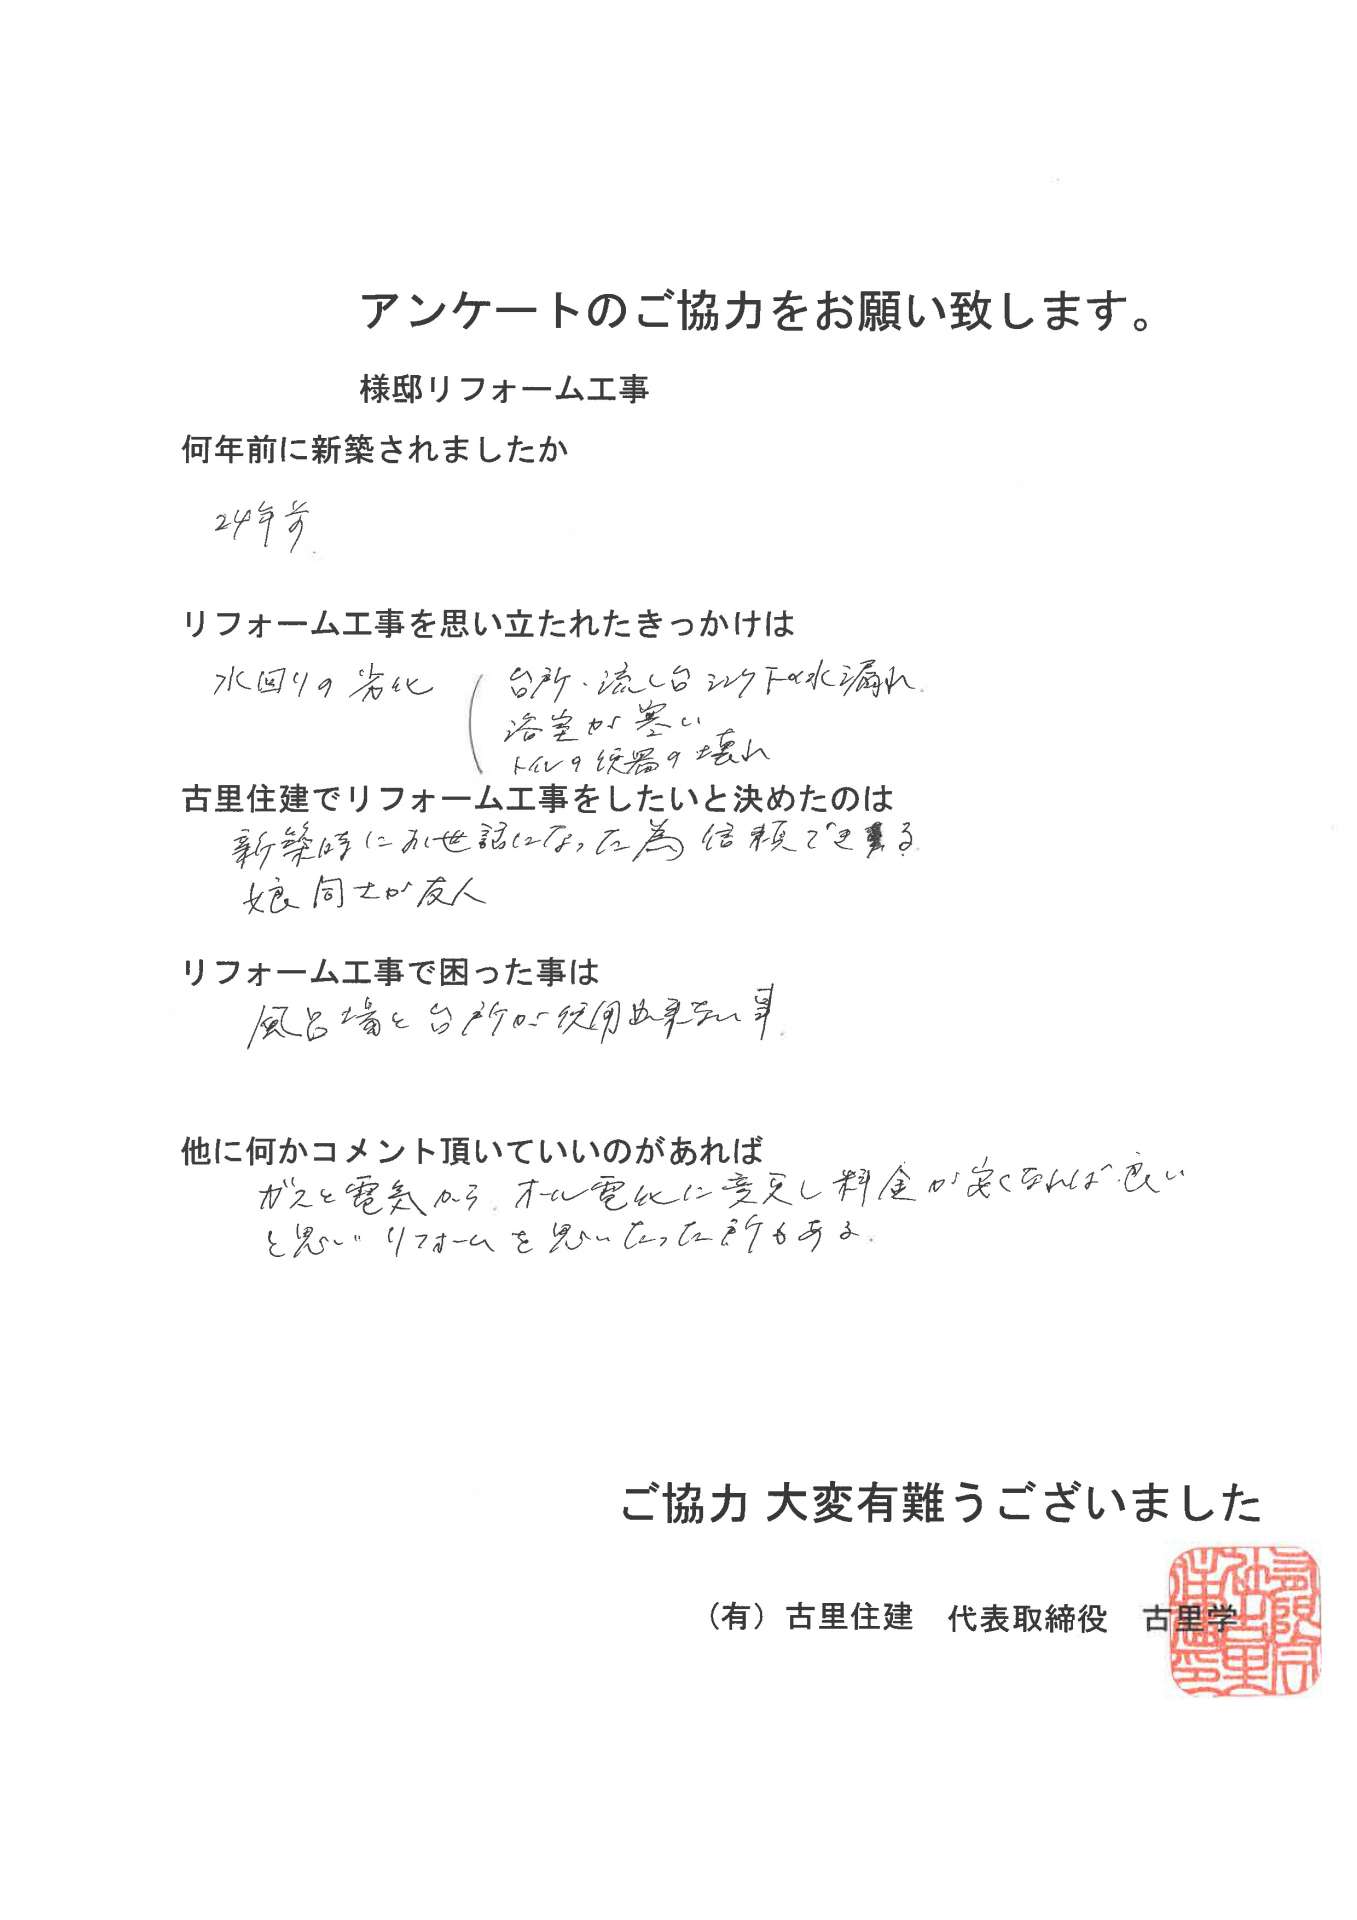 アンケートのご協力をお願い致します。
様邸リフォーム工事
何年前に新築されましたか
24年前
リフォーム工事を思い立たれたきっかけは
水回りの劣化 台所・流し台シンク下の水漏れ
浴室が寒い
トイレの便器の壊れ
古里住建でリフォーム工事をしたいと決めたのは
新築時にお世話になった為信頼できる
娘同士が友人
リフォーム工事で困った事は
風呂場と台所が使用出来ない事
他に何かコメント頂いていいのがあれば
ガスと電気から、オール電化に変更し料金が安くなれば良い
と思いリフォームを思いたった所もある。
ご協力 大変有難うございました
（有）古里住建 代表取締役 古里学